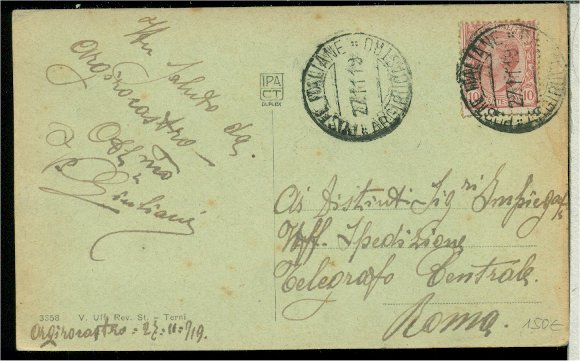 Un Saluto da
Argirocastro
Off. mo
G. Giuliani
IPA
CT
DUPLEX
POSTE ITALIANE ARGIROCASTRO
27.11.19
POSTE ITALIANE ARGIROCASTRO
27.11.19
10 10
Ai Distinti Sig.ri Impiegati
Uff. Spedizione
Telegrafo Centrale
Roma.
150€
3358 V. Uff. Rev. St. - Terni
Argirocastro = 27-11-919